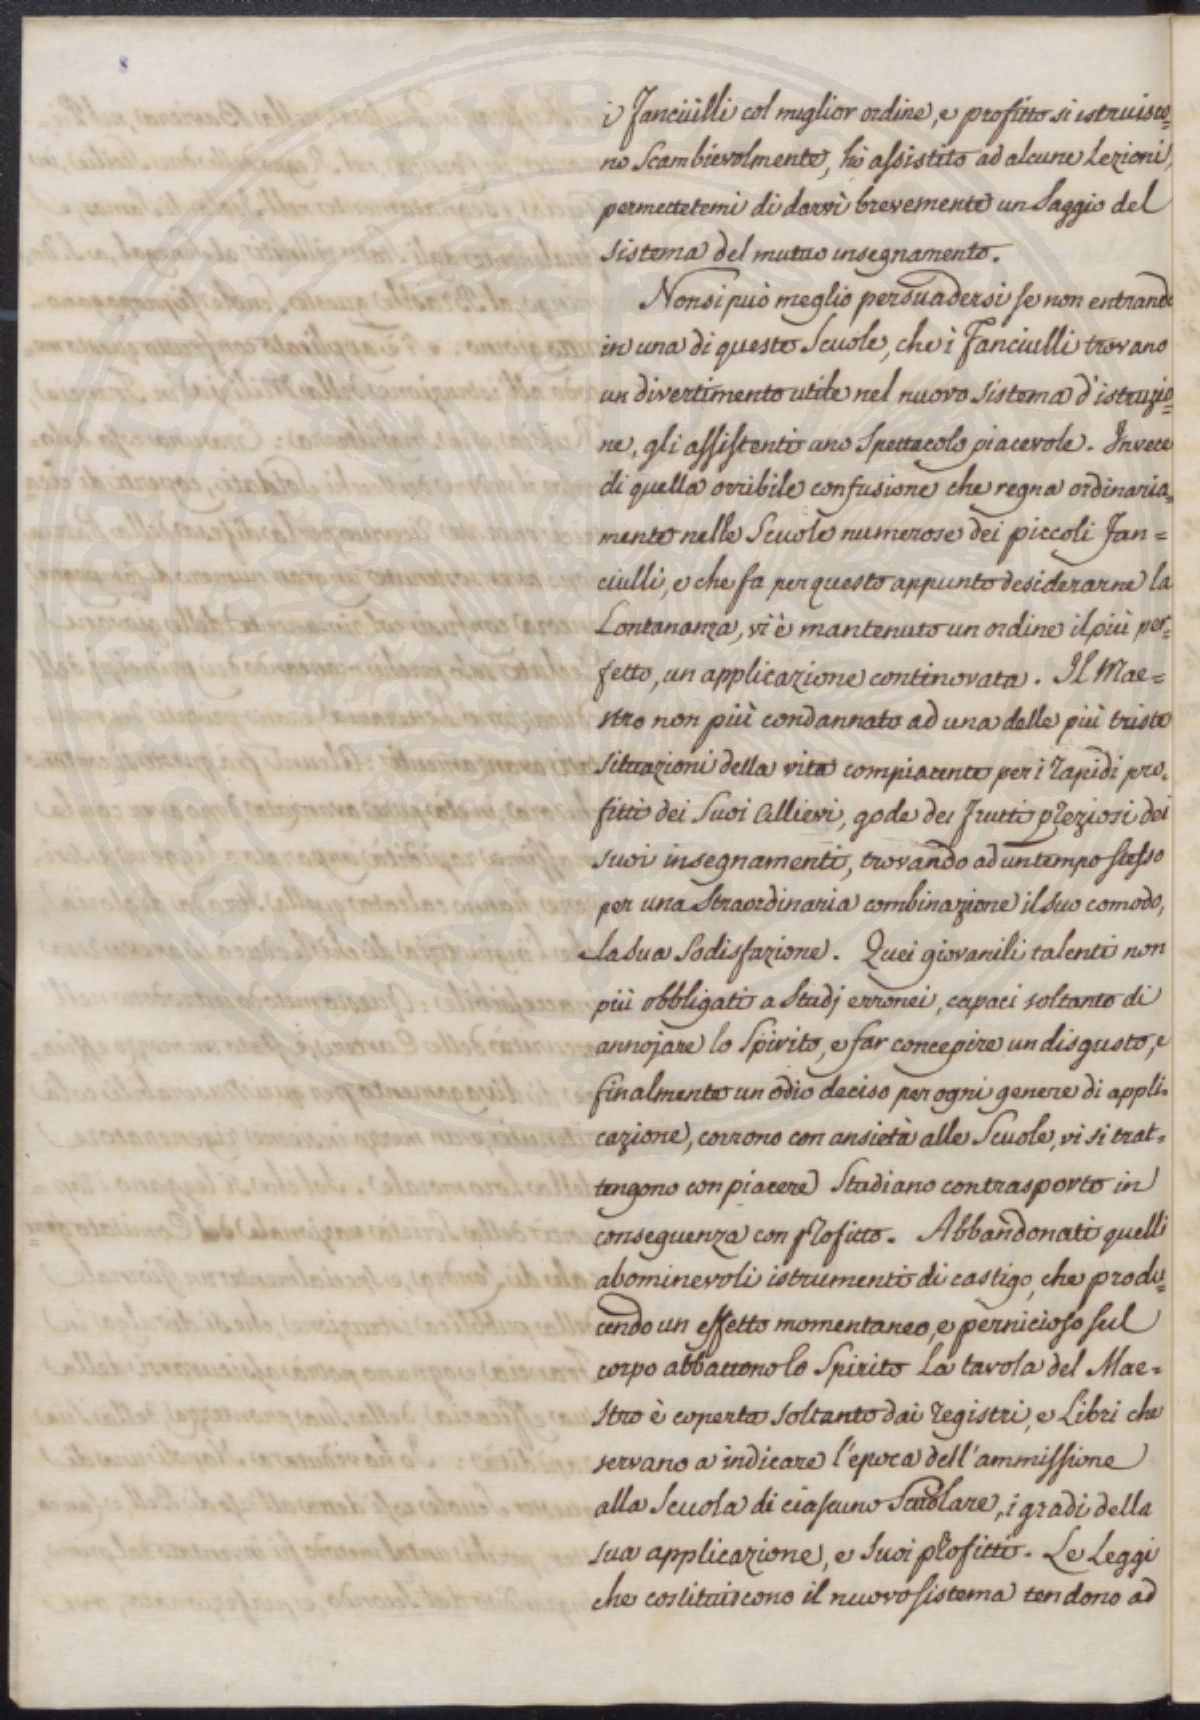 i Fanciulli col miglior ordine, e profitto si istruisco=
no Scambievolmente, hò assistito ad alcune Lezioni,
permettetemi di darvi brevemente un Saggio del
sistema del mutuo insegnamento.
Non si può meglio persuadersi se non entrando
in una di queste Scuole, che i Fanciulli trovano
un divertimento utile nel nuovo Sistema d'istruzio=
ne, gli assistenti uno Spettacolo piacevole. Invece
di quella orribile confusione che regna ordinaria=
mente nelle Scuole numerose dei piccoli Fan=
ciulli, e che fa per questo appunto desiderarne la
Lontananza, vi è mantenuto un ordine il più per=
fetto, un applicazione continovata. Il Mae=
stro non più condannato ad una delle più triste
situazioni della vita compiacente per i rapidi pro=
fitti dei Suoi Allievi, gode dei frutti preziosi dei
suoi insegnamenti, trovando ad un tempo stesso
per una Straordinaria combinazione il Suo comodo,
la Sua Sodisfazione. Quei giovanili talenti non
più obbligati a Studj erronei, capaci soltanto di
annojare lo Spirito, e far concepire un disgusto, e
finalmente un odio deciso per ogni genere di appli=
cazione, corrono con ansietà alle Scuole, vi si trat=
tengono con piacere Studiano con trasporto in
conseguenza con profitto. Abbandonati quelli
abominevoli istrumenti di castigo, che produ=
cendo un effetto momentaneo, e pernicioso sul
corpo abbattono lo Spirito La tavola del Mae=
stro è coperta soltanto dai registri, e Libri che
servano a indicare l'epoca dell'ammissione
alla Scuola di ciascuno Scuolare, i gradi della
sua applicazione, e Suoi profitti. Le Leggi
che costituiscono il nuovo sistema tendono ad